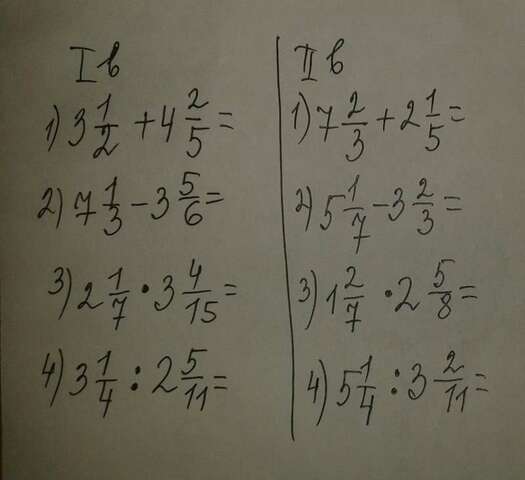 I в
1) 3 1/2 + 4 2/5 =
2) 7 1/3 - 3 5/6 =
3) 2 1/7 · 3 4/15 =
4) 3 1/4 : 2 5/11 =
II в
1) 7 2/3 + 2 1/5 =
2) 5 1/7 - 3 2/3 =
3) 1 2/7 · 2 5/8 =
4) 5 1/4 : 3 2/11 =